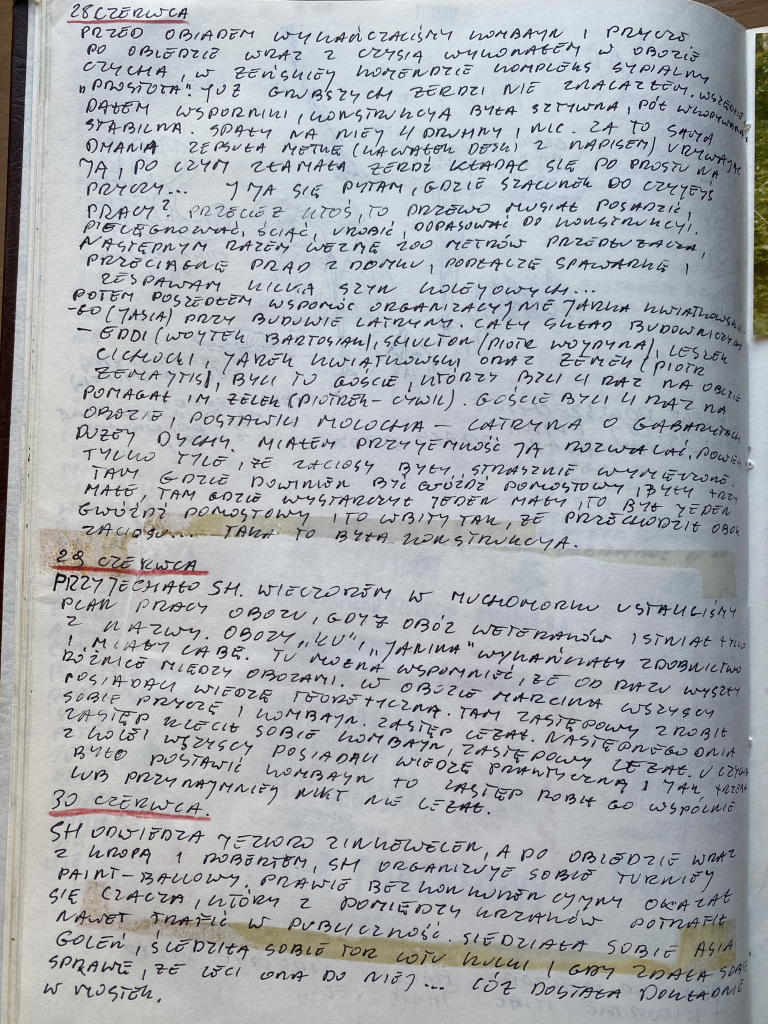 28 CZERWCA
PRZED OBIADEM WYKAŃCZALIŚMY KOMBAJN I PRYCZE
PO OBIEDZIE WRAZ Z CZYSIĄ WYKONAŁEM W OBOZIE
CZYCHA, W ŻEŃSKIEJ KOMENDZIE KOMPLEKS SYPIALNY
"PROSTOTA". JUŻ GRUBSZYCH ŻERDZI NIE ZNALAZŁEM. WSZĘDZIE
DAŁEM WSPORNIKI, KONSTRUKCJA BYŁA SZTYWNA, PÓŁ WKOPYWANA,
STABILNA. SPAŁY NA NIEJ 4 DRUHNY I NIC. ZA TO SAMA
DMANIA ZEPSUŁA METKĘ (KAWAŁEK DESKI Z NAPISEM) URYWAJĄC
JĄ, PO CZYM ZŁAMAŁA ŻERDŹ KŁADĄC SIĘ PO PROSTU NA
PRYCZY... I JA SIĘ PYTAM, GDZIE SZACUNEK DO CZYJEJŚ
PRACY? PRZECIEŻ KTOŚ, TO DRZEWO MUSIAŁ POSADZIĆ,
PIELĘGNOWAĆ, ŚCIĄĆ, UROBIĆ, DOPASOWAĆ DO KONSTRUKCJI.
NASTĘPNYM RAZEM WEZMĘ 200 METRÓW PRZEDŁUŻACZA,
PRZECIĄGNĘ PRĄD Z DOMKU, PODŁĄCZĘ SPAWARKĘ I
ZESPAWAM KILKA SZYN KOLEJOWYCH...
POTEM POSZEDŁEM WSPOMÓC ORGANIZACYJNIE JARKA KWIATKOWSKIE-
-GO (JASIA) PRZY BUDOWIE LATRYNY. CAŁY SKŁAD BUDOWNICZYCH
- EDDI (WOJTEK BARTOSIAK), SHULTON (PIOTR WOJDYNA), LESZEK
CICHOCKI, JAREK KWIATKOWSKI ORAZ ZEMEK (PIOTR
ZEMAJTIS), BYLI TO GOŚCIE, KTÓRZY BYLI 4 RAZ NA OBOZIE
POMAGAŁ IM ZELEK (PIOTREK - CYWIL). GOŚCIE BYLI 4 RAZ NA
OBOZIE, POSTAWILI MOLOCHA - LATRYNA O GABARYTACH
DUŻEJ DYCHY. MIAŁEM PRZYJEMNOŚĆ JĄ ROZWALAĆ, POWIEM
TYLKO TYLE, ŻE ZACIOSY BYŁY STRASZNIE WYMĘCZONE.
TAM GDZIE POWINIEN BYĆ GWÓŹDŹ POMOSTOWY, BYŁY TRZY
MAŁE, TAM GDZIE WYSTARCZYŁ JEDEN MAŁY, TO BYŁ JEDEN
GWÓŹDŹ POMOSTOWY I TO WBITY TAK, ŻE PRZECHODZIŁ OBOK
ZACIOSU... TAKA TO BYŁA KONSTRUKCJA.
29 CZERWCA
PRZYJECHAŁO SH. WIECZOREM W MUCHOMORKU USTALILIŚMY
PLAN PRACY OBOZU, GDYŻ OBÓZ WETERANÓW ISTNIAŁ TYLKO
Z NAZWY. OBOZY "KU" I "JANINA" WYKAŃCZAŁY ZDOBNICTWO
I MIAŁY LABĘ. TU MOŻNA WSPOMNIEĆ, ŻE OD RAZU WYSZŁY
RÓŻNICE MIĘDZY OBOZAMI. W OBOZIE MARCINA WSZYSCY
POSIADALI WIEDZĘ TEORETYCZNĄ. TAM ZASTĘPOWY ZROBIŁ
SOBIE PRYCZĘ I KOMBAJN. ZASTĘP LEŻAŁ. NASTĘPNEGO DNIA
ZASTĘP KLECIŁ SOBIE KOMBAJN, ZASTĘPOWY LEŻAŁ. U CZYCHA
Z KOLEI WSZYSCY POSIADALI WIEDZĘ PRAKTYCZNĄ I JAK TRZEBA
BYŁO POSTAWIĆ KOMBAJN TO ZASTĘP ROBIŁ GO WSPÓLNIE
LUB PRZYNAJMNIEJ NIKT NIE LEŻAŁ.
30 CZERWCA.
SH ODWIEDZA JEZIORO ZINKEWELEN, A PO OBIEDZIE WRAZ
Z KROPĄ I ROBERTEM, SH ORGANIZUJE SOBIE TURNIEJ
PAINT-BALLOWY. PRAWIE BEZKONKURENCYJNY OKAZAŁ
SIĘ CZACZA, KTÓRY Z POMIĘDZY KRZAKÓW POTRAFIŁ
NAWET TRAFIĆ W PUBLICZNOŚĆ. SIEDZIAŁA SOBIE ASIA
GOLEŃ, ŚLEDZIŁA SOBIE TOR LOTU KULKI I GDY ZDAŁA SOBIE
SPRAWĘ, ŻE LECI ONA DO NIEJ... CÓŻ DOSTAŁA DOKŁADNIE
W MOSTEK.